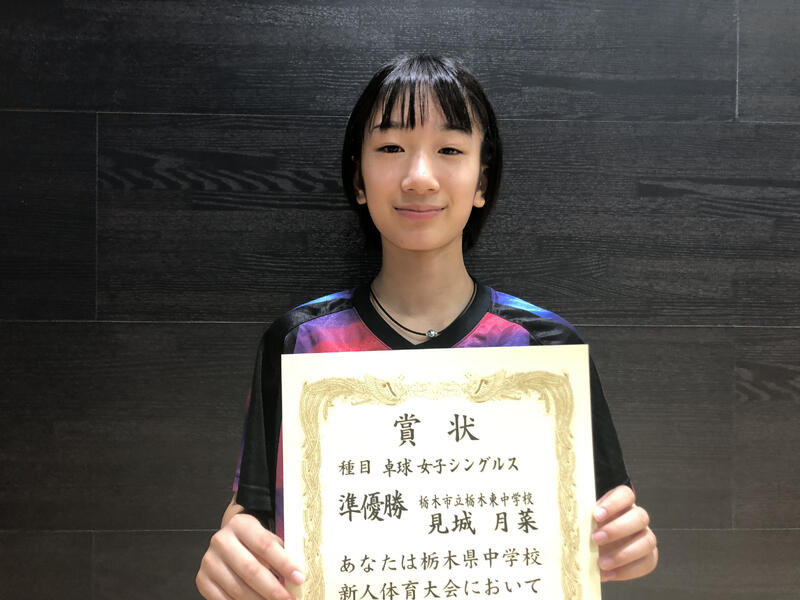 賞状
種目 卓球 女子シングルス
準優勝 栃木市立栃木東中学校
見城 月菜
あなたは栃木県中学校
新人体育大会において